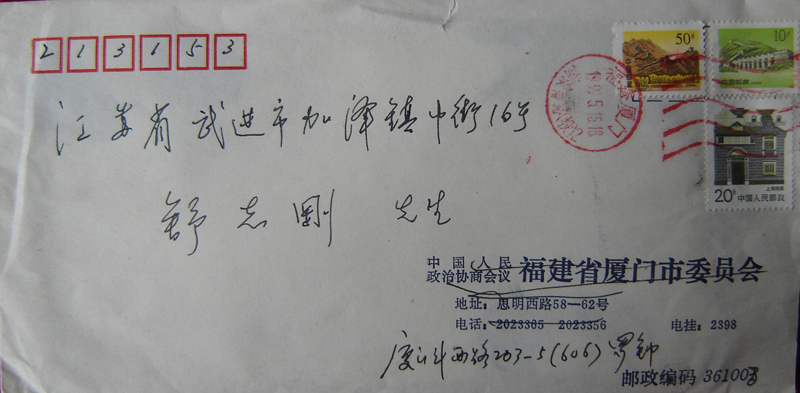 213153
50分
10分
江苏省武进市加泽镇中街16号
福建厦门
20分
上海民居
中国人民邮政
舒志刚 先生
中国人民
政治协商会议 福建省厦门市委员会
地址：思明西路58—62号
电话：2023365 2023356 电挂：2398
西路203-5(606)
邮政编码 361003